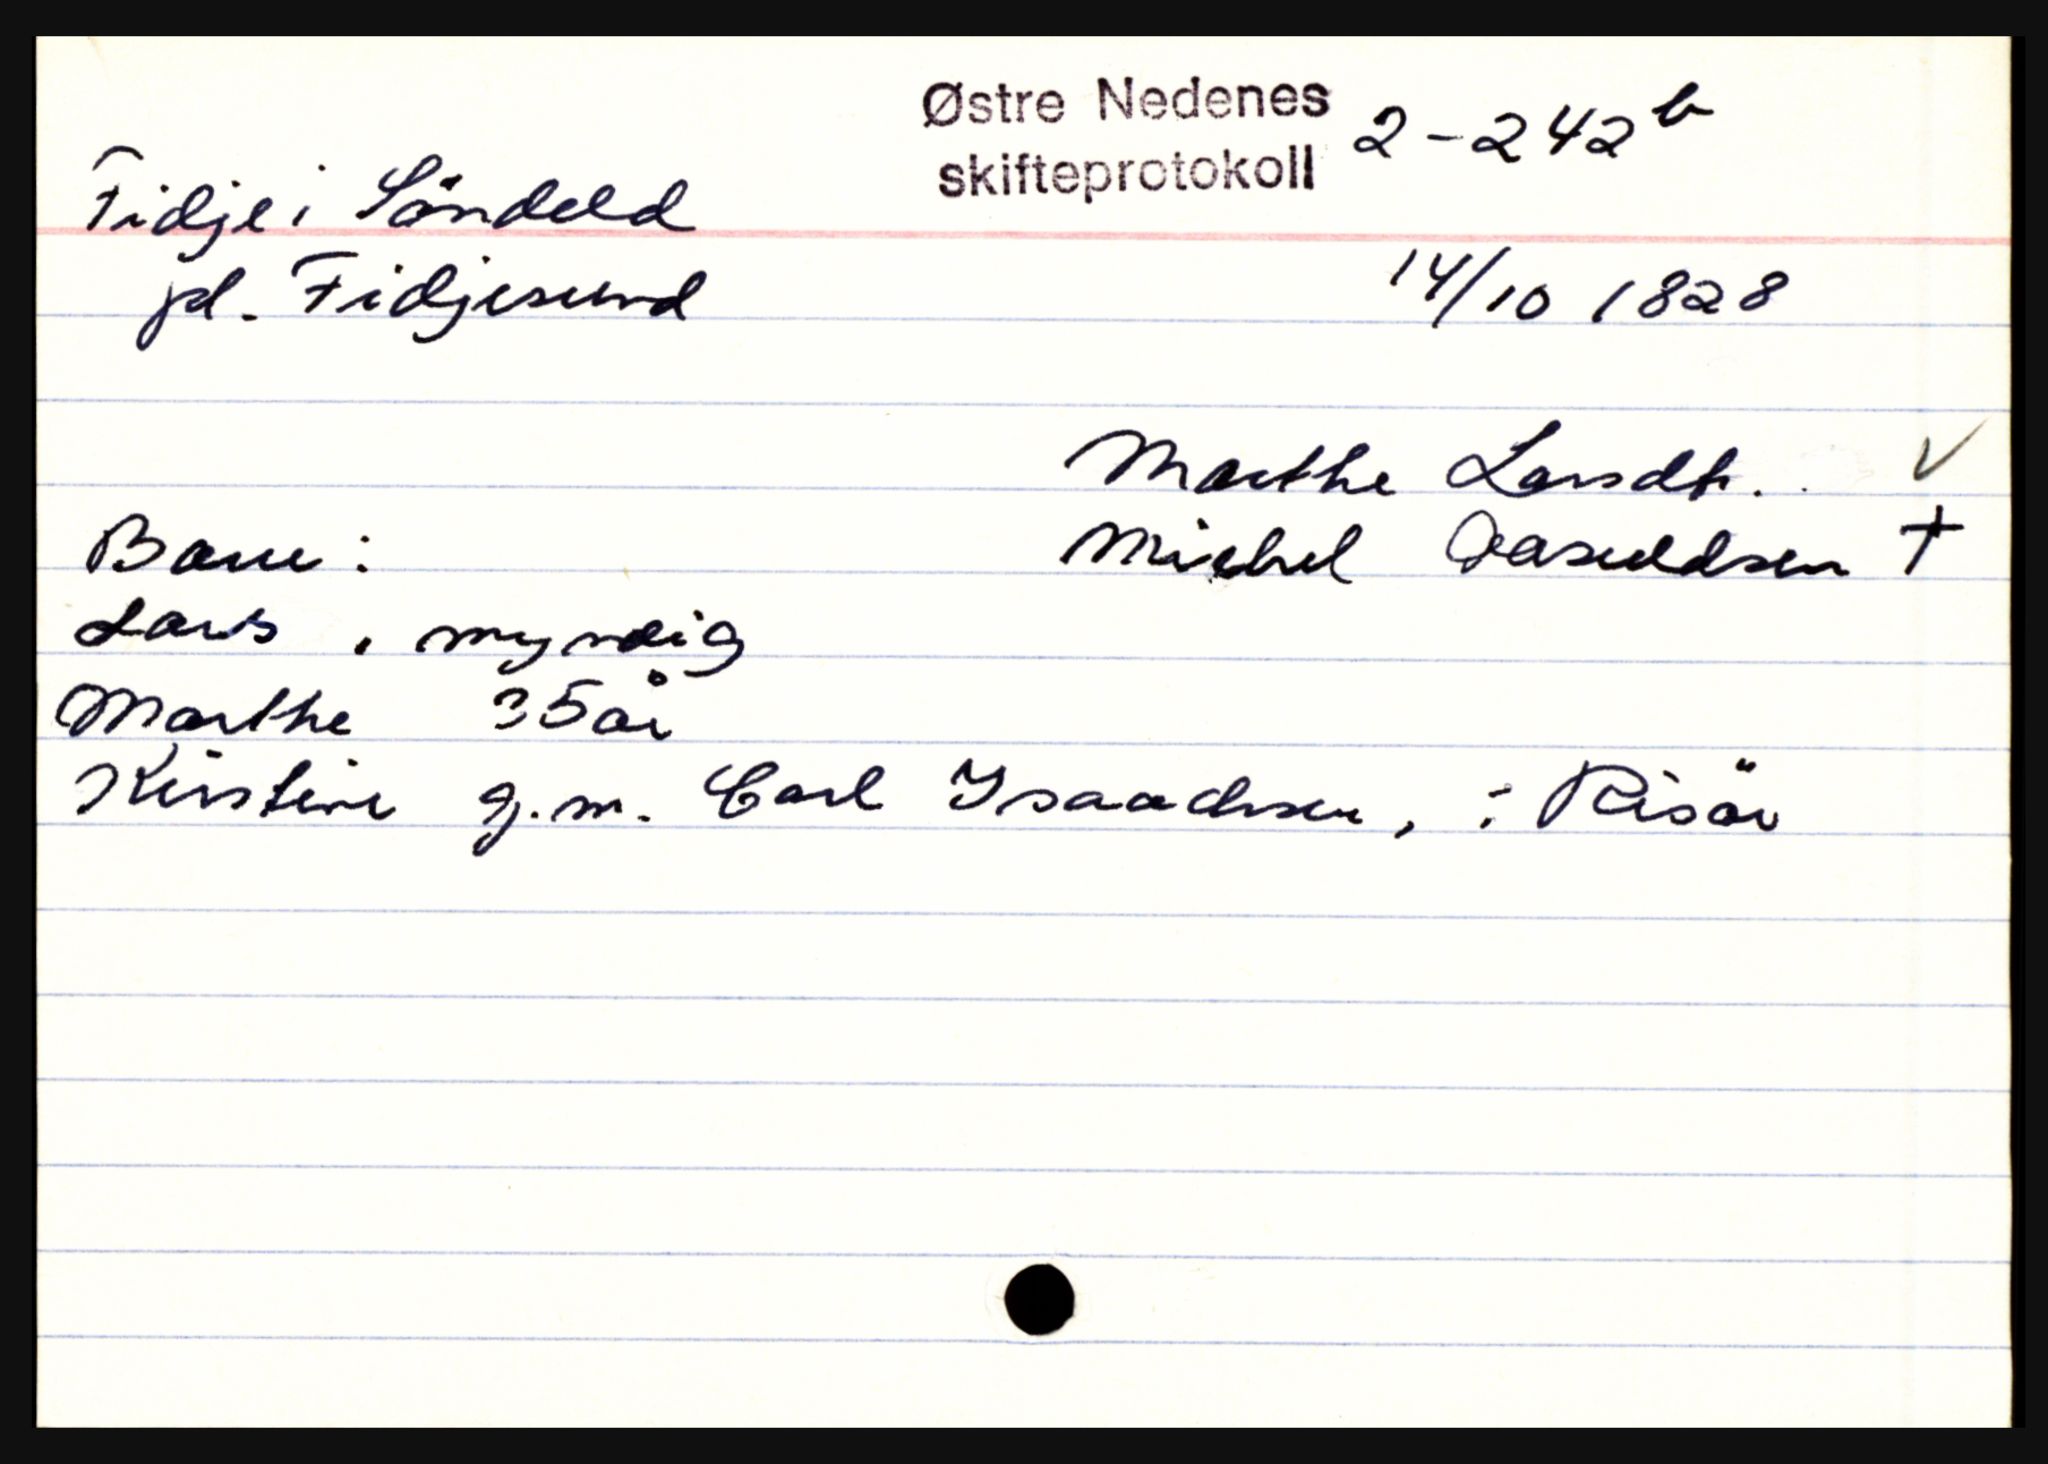 Østre Nedenes
skifteprotokoll 2-242 b
Fidje i Söndeled
pl. Fidjesund
14/10 1828
Marthe Larsdtr. ✓
Michel Oasuldsen †
Barn:
Lars, myndig
Marthe 35 år
Kirstine g.m. Carl Isaachsen, i Risör